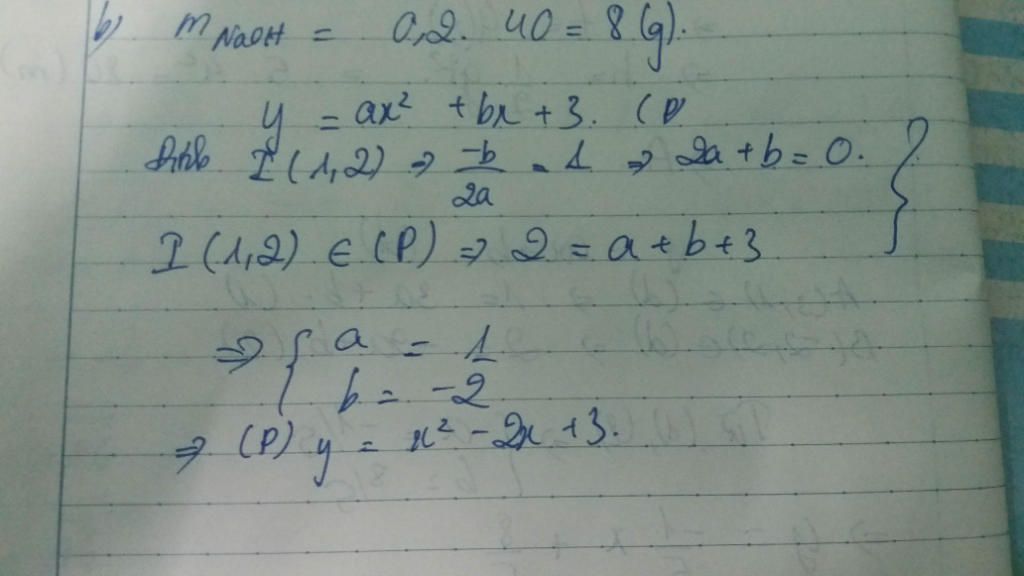 b) m NaOH = 0,2. 40 = 8 (g).
y = ax² + bx + 3. (P)
I (1,2) => -b/2a = 1 => 2a + b = 0.
I (1,2) ∈ (P) => 2 = a + b + 3
=> { a = 1
b = -2
=> (P) y = x² - 2x + 3.